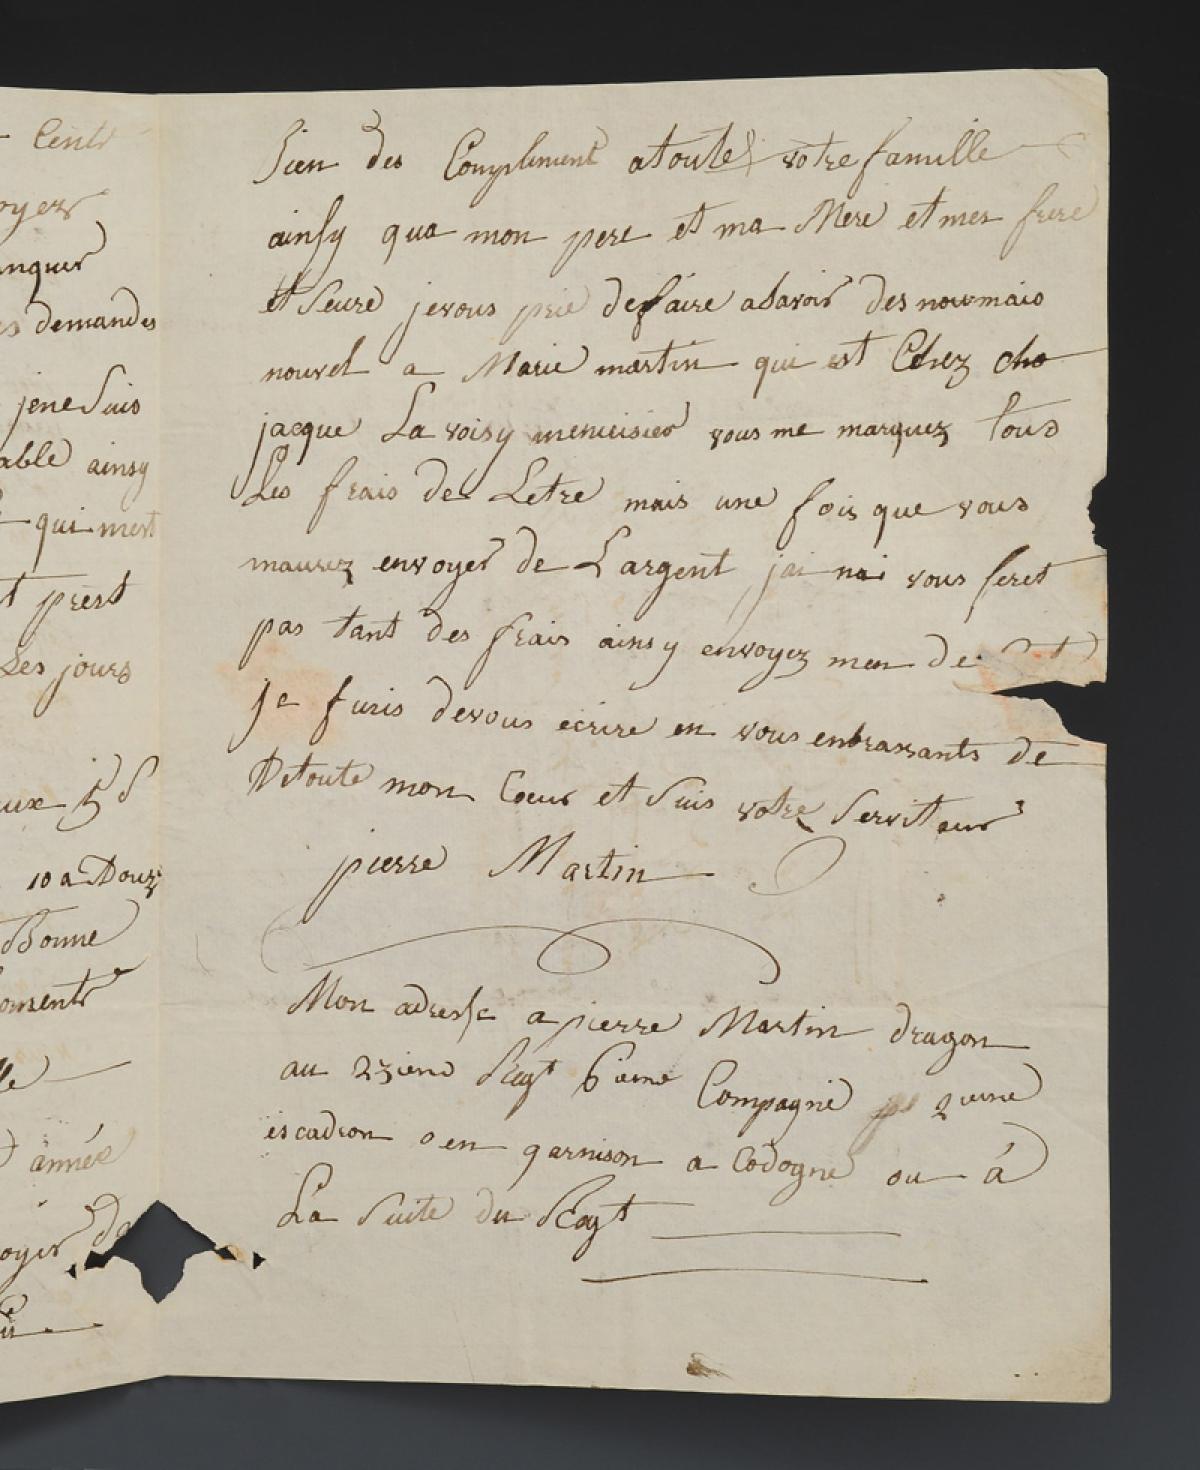 Centr
oyez
anquer
es demandes
jene Suis
able ainsy
qui mest
t prest
Les jours
aux 15 d
10 a Douz
Bonne
oments
lle
année
oyer de
Bien des Compliment atoute votre famille
ainsy qua mon pere et ma Mere et mes frere
et Seure jevous prie defaire asavoir des nouvmais
nouvel a Marie martin qui est Chez cho
jacque La voisy menuisier vous me marquez tous
Les frais de Letre mais une fois que vous
maurez envoyer de Largent jai nai vous feret
pas tant des frais ainsy envoyez men de
je finis devous ecrire en vous enbrassants de
Detoute mon Coeur et Suis votre Serviteur
pierre Martin
Mon adresse a pierre Martin dragon
au 23ieme Regt 6ieme Compagnie 2ieme
escadron en garnison a Codogne ou à
La Suite du Regt